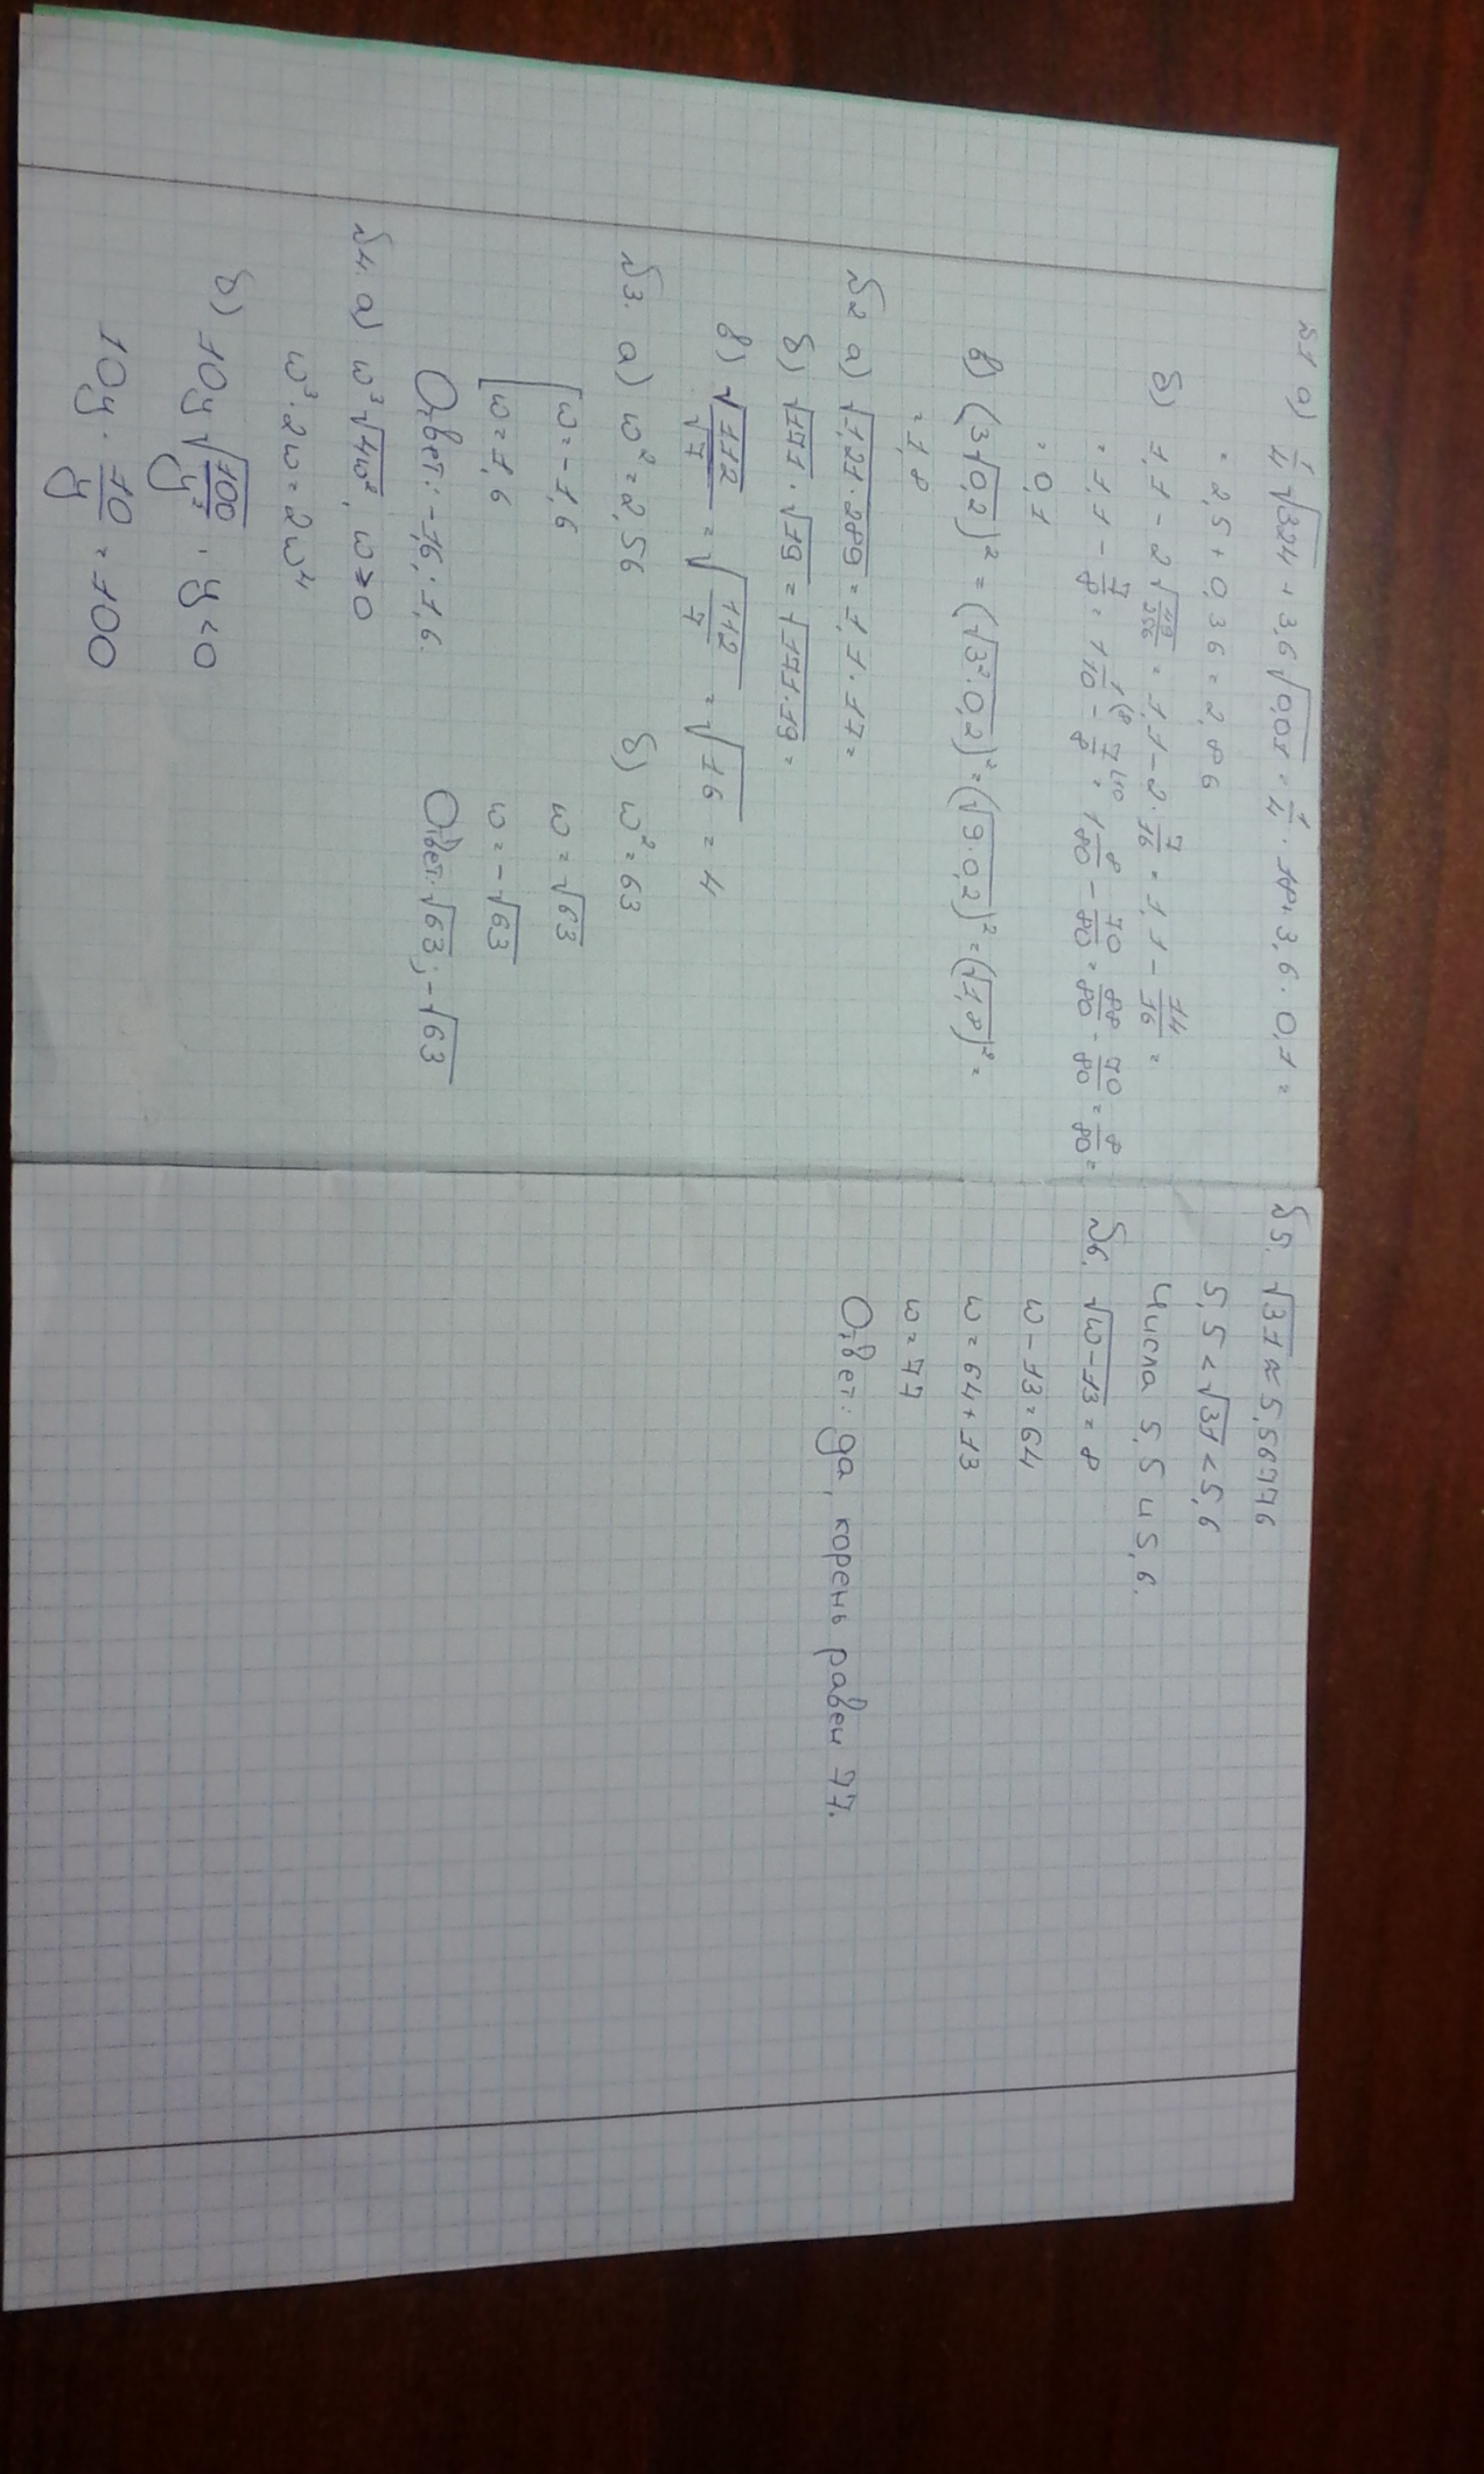 №1 а) 1/4 √324 + 3,6 √0,01 = 1/4 · 18 + 3,6 · 0,1 =
= 2,5 + 0,36 = 2,86
б) 1,1 - 2 √49/256 = 1,1 - 2 · 7/16 = 1,1 - 14/16 =
= 1,1 - 7/8 = 1 1/10 (8 - 7/8 (10 = 1 8/80 - 70/80 = 88/80 - 70/80 = 8/80 =
= 0,1
в) (3√0,2)² = (√3²·0,2)² = (√9·0,2)² = (√1,8)² =
= 1,8
№2 а) √1,21·289 = 1,1·17 =
б) √171 · √19 = √171·19 =
в) √112/√7 = √112/7 = √16 = 4
№3. а) w² = 2,56 б) w² = 63
[w = -1,6 w = √63
w = 1,6 w = -√63
Ответ: -1,6; 1,6. Ответ: √63; -√63
№4. а) w³√4w², w ≥ 0
w³·2w = 2w⁴
б) 10y √100/y², y<0
10y · 10/y = 100
№5. √31 ≈ 5,56776
5,5 < √31 < 5,6
Числа 5,5 и 5,6.
№6. √w-13 = 8
w - 13 = 64
w = 64 + 13
w = 77
Ответ: да, корень равен 77.